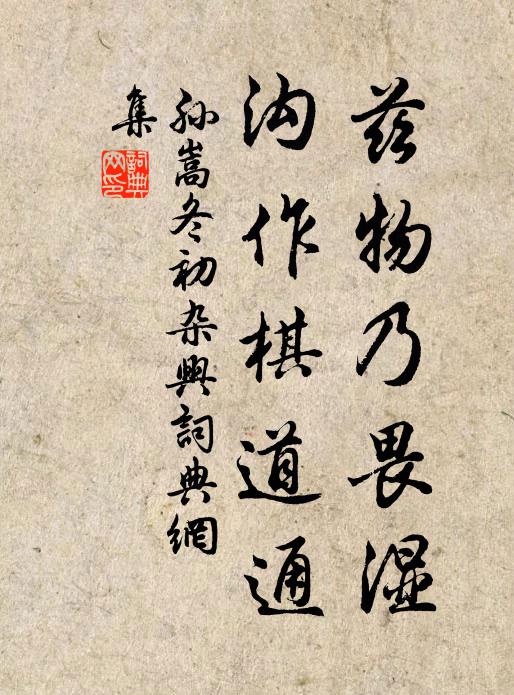 茲物乃畏湿
沟作棋道通
孙嵩冬初杂興詞典網
集
詞典
网印